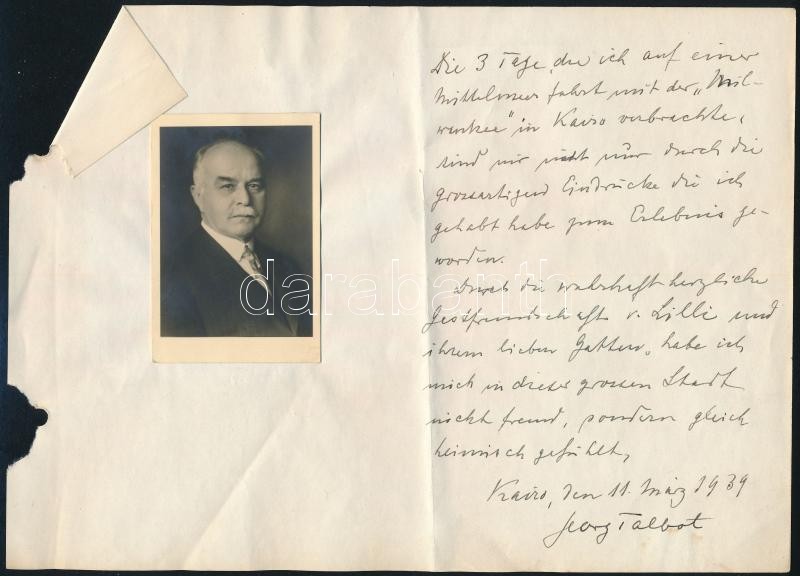 Die 3 Tage, die ich auf einer
Mittelmeerfahrt mit der „Mil-
waukee" in Kairo verbrachte,
sind mir nicht nur durch die
grossartigen Eindrücke die ich
gehabt habe zum Erlebnis ge-
worden.
Durch die wahrhaft herzliche
Gastfreundschaft v. Lilli und
ihrem lieben Gatten, habe ich
mich in dieser grossen Stadt
nicht fremd, sondern gleich
heimisch gefühlt,
Kairo, den 11. März 1939
Georg Talbot
darabanth